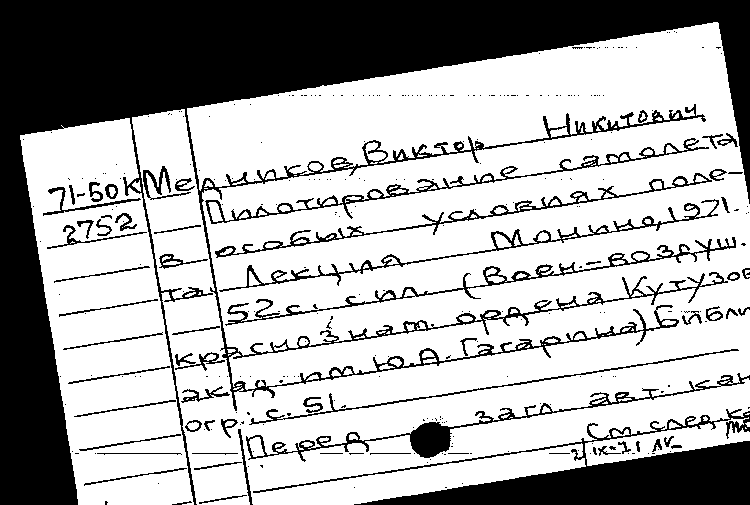 71-50К Медников, Виктор Никитович
2752 Пилотирование самолета
в особых условиях поле-
та. Лекция Монино, 1971.
52 с. с ил. (Воен.-воздуш.
краснознам. ордена Кутузов
акад. им. Ю.А. Гагарина) Библи
огр.: с. 51.
Перед загл. авт.: кан
См. след. ка